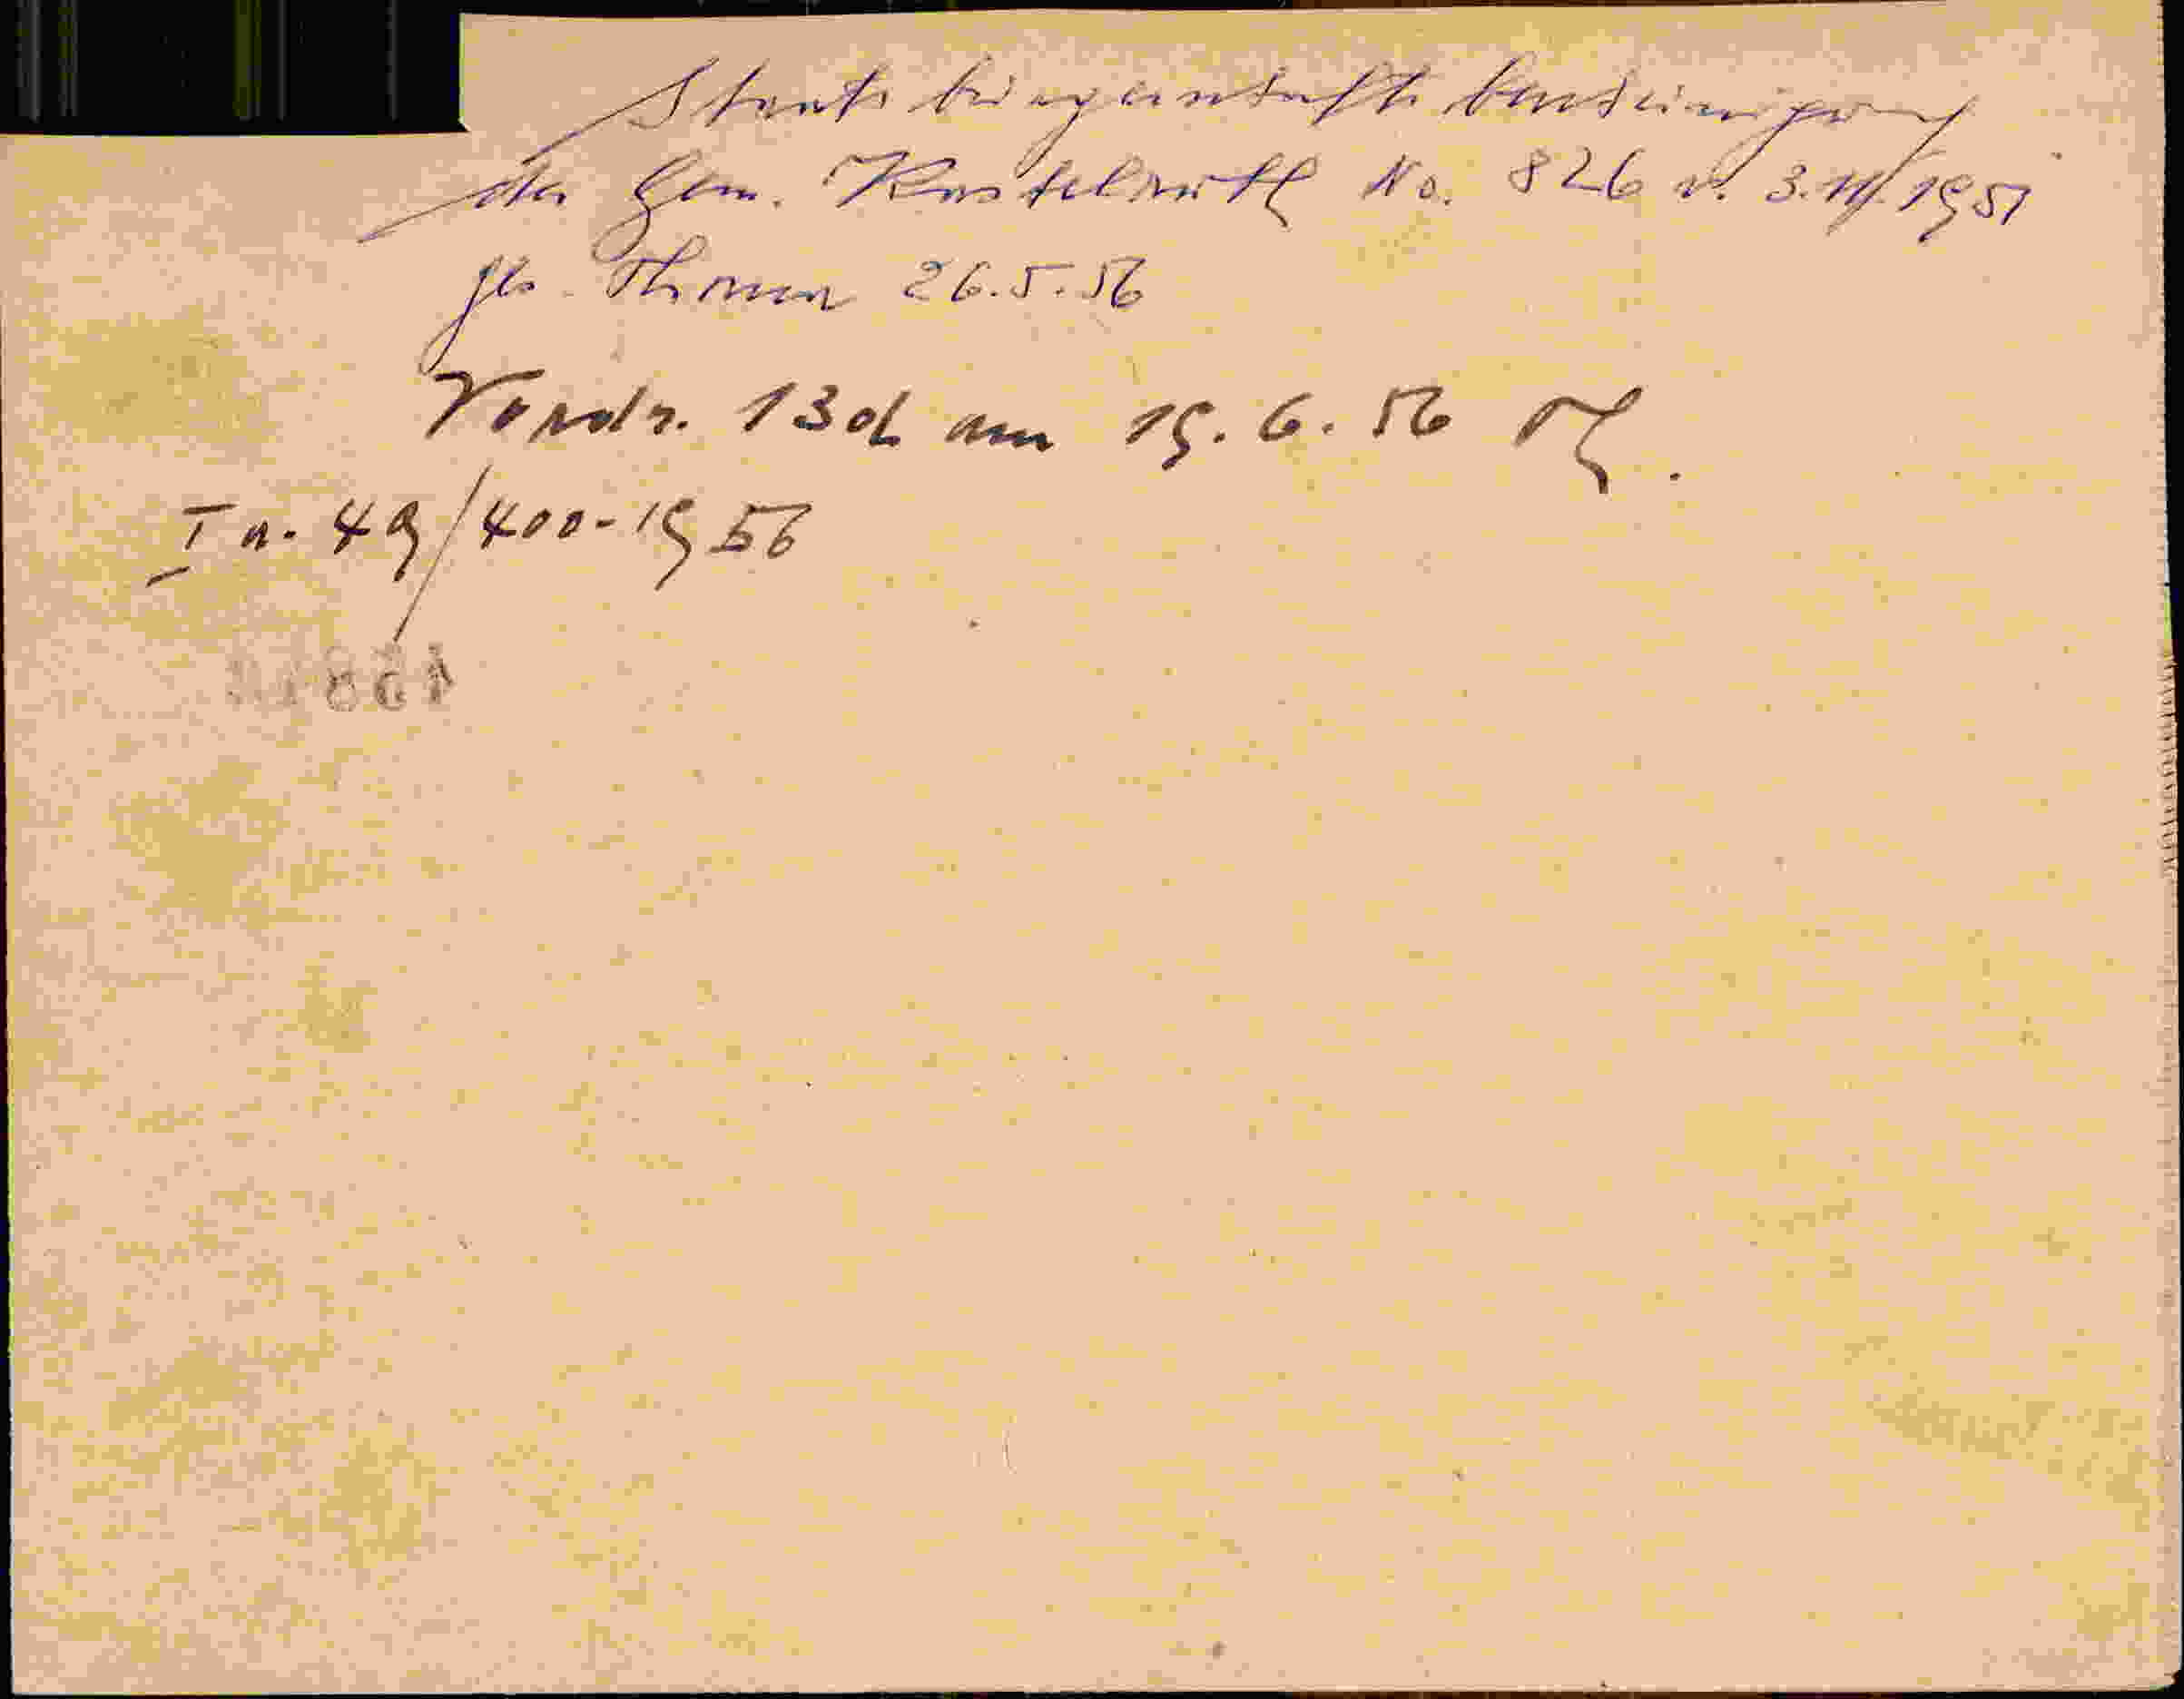 Staatsbürgerschaftsbescheinigung
der Gem. Kastelruth No. 826 v. 3.11.1951
26.5.56
Vordr. 13d am 19.6.56
I a. 49/400-1956